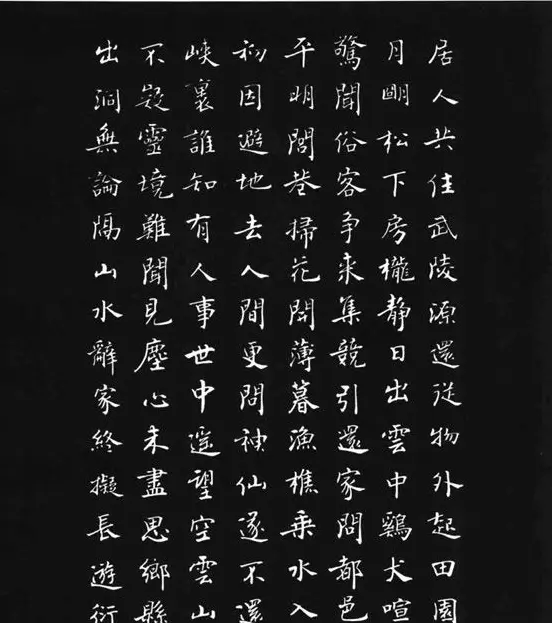 居人共住武陵源還從物外起田園
月眀松下房櫳靜日出雲中鷄犬喧
驚聞俗客爭來集競引還家問都邑
平明閭巷掃花開薄暮漁樵乘水入
初因避地去人間更問神仙遂不還
峽裏誰知有人事世中遥望空雲山
不疑靈境難聞見塵心未盡思鄉縣
出洞無論隔山水辭家終擬長遊衍